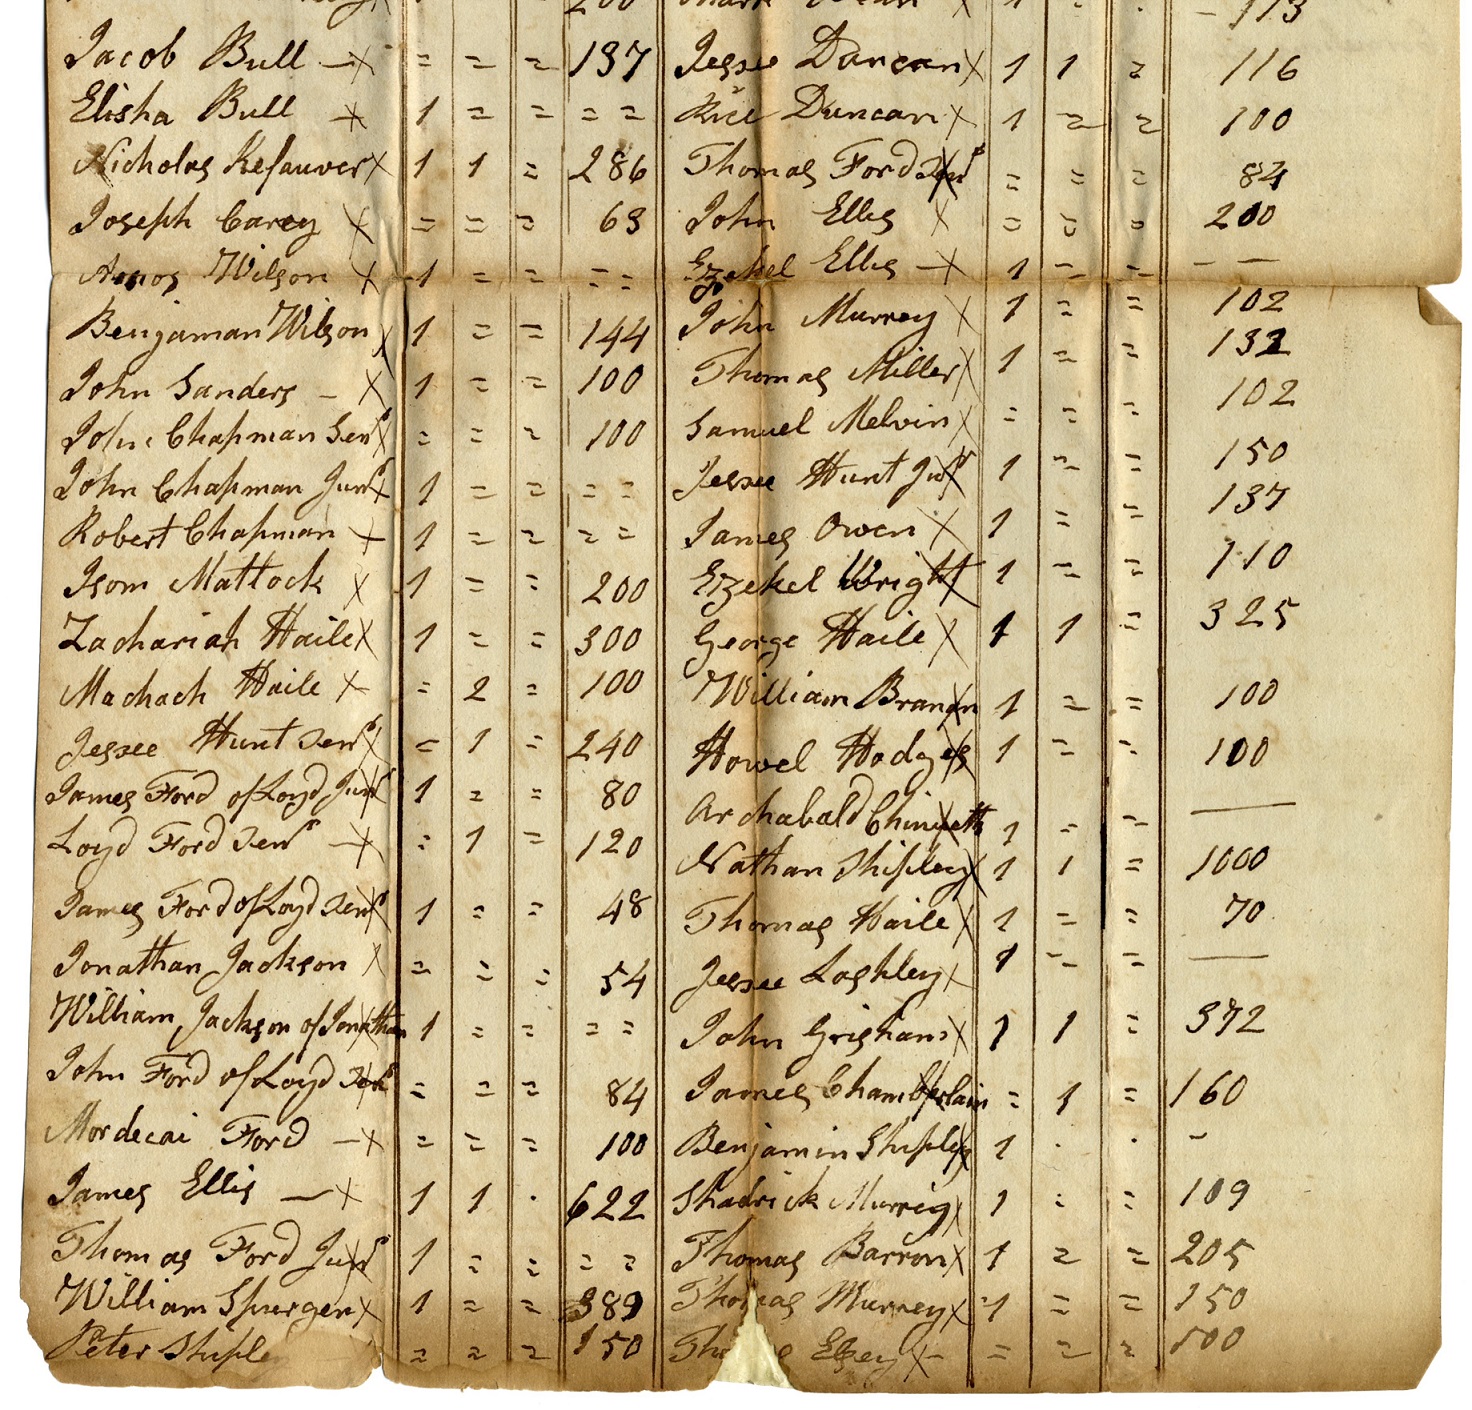 200 113
Jacob Bull — x = = = 137 Jessee Duncan x 1 1 = 116
Elisha Bull — x 1 = = = = Rice Duncan x 1 = = 100
Nicholas Kefauver x 1 1 = 286 Thomas Ford Senr x = = = 84
Joseph Carey x = = = 63 John Ellis x = = = 200
Amos Wilson x 1 = = = = Ezekel Ellis — x 1 = = — —
Benjaman Wilson x 1 = = 144 John Murrey x 1 = = 102
John Sanders – x 1 = = 100 Thomas Miller x 1 = = 132
John Chapman Senr x = = = 100 Samuel Melvin x = = = 102
John Chapman Junr x 1 = = = = Jessee Hunt Junr x 1 = = 150
Robert Chapman x 1 = = = = James Owen x 1 = = 137
Isom Mattock x 1 = = 200 Ezekel Wright x 1 = = 110
Zachariah Haile x 1 = = 300 George Haile x 1 1 = 325
Machach Haile x = 2 = 100 William Branon x 1 = = 100
Jessee Hunt Senr x = 1 = 240 Howel Hodges x 1 = = 100
James Ford of Loyd Junr x 1 = = 80 Archabald Chineth x 1 = = —
Loyd Ford Senr — x = 1 = 120 Nathan Shipley x 1 1 = 1000
James Ford of Loyd Senr x 1 = = 48 Thomas Haile x 1 = = 70
Jonathan Jackson x = = = 54 Jessee Loshley x 1 = = —
William Jackson of Jonathan x 1 = = = = John Grisham x 1 1 = 372
John Ford of Loyd Senr x = = = 84 James Chamberlain x = 1 = 160
Mordecai Ford — x = = = 100 Benjamin Shipley x 1 · · –
James Ellis — x 1 1 · 622 Shadrick Murrey x 1 = = 109
Thomas Ford Junr x 1 = = = = Thomas Barron x 1 = = 205
William Spurgen x 1 = = 389 Thomas Murrey x 1 = = 150
Peter Shipley = = = 150 Elsey x – = = = 500